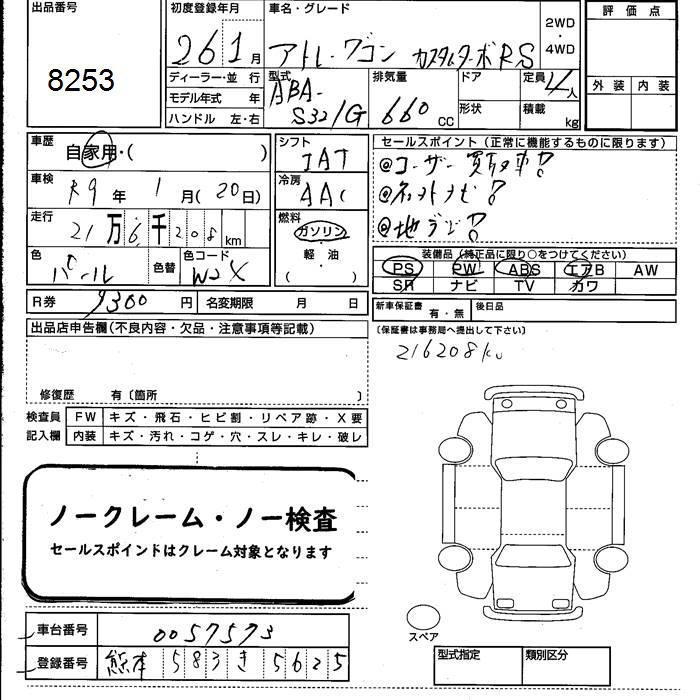 出品番号
8253
初度登録年月
26 1月
車名・グレード
アトレーワゴン カスタムターボRS
2WD
・
4WD
評価点
外装 内装
ディーラー・並行
モデル年式 年
ハンドル 左・右
型式
ABA-
S321G
排気量
660 cc
ドア
形状
定員 4人
積載 kg
車歴
自家用・( )
シフト
IAT
セールスポイント(正常に機能するものに限ります)
@ユーザー買取車!
@ネットナビ!
@地デジ!
車検
R9年 1月(20日)
冷房
AAC
走行
21万6千208km
燃料
ガソリン
・
軽・油
( )
色
パール
色替
色コード
W24
装備品(純正品に限り○をつけてください)
PS PW ABS エアB AW
SR ナビ TV カワ
R券 9300円
名変期限 月 日
新車保証書
有・無
後日品
(保証書は事務局へ提出して下さい)
出品店申告欄(不良内容・欠品・注意事項等記載)
216208km
修復歴 有〔箇所 〕
検査員
記入欄
FW キズ・飛石・ヒビ割・リペア跡・X要
内装 キズ・汚れ・コゲ・穴・スレ・キレ・破レ
ノークレーム・ノー検査
セールスポイントはクレーム対象となります
スペア
車台番号 0057573
登録番号 熊本 583 き 5625
型式指定
類別区分